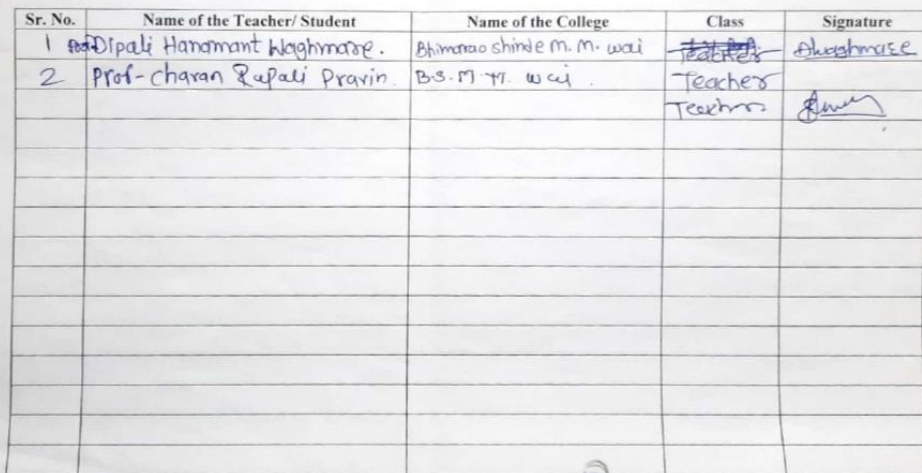 Sr. No. Name of the Teacher/ Student Name of the College Class Signature
1 Prof Dipali Hanamant Waghmare. Bhimarao shinde M. M. wai Teacher Dwaghmare
2 Prof- Charan Rupali Pravin. B.S.M.M. wai. Teacher
Teacher